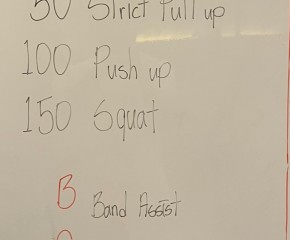 50 Strict Pull up
100 Push up
150 Squat
B Band Assist